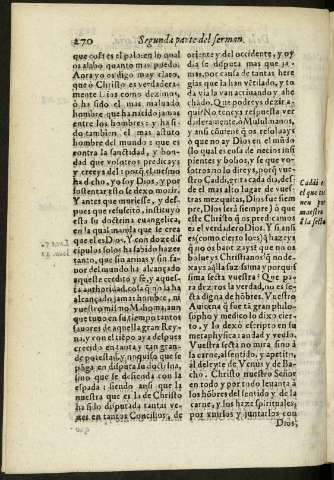 270 Segunda parte del sermon,
que cosa es el palo: en lo qual
os alabo quanto mas puedo.
Aora yo os digo muy claro,
que ò Christo es verdadera-
mente Dios como dezimos,
ò ha sido el mas maluado
hombre que ha nacido jamas
entre los hombres: y ha si-
do tambien el mas astuto
hombre del mundo: que es
contra la santidad, y bon-
dad que vosotros predicays
y creeys del: porq̃ el mesmo
ha dicho, yo soy Dios, y por
sustentar esto se dexo morir.
Y antes que muriesse, y des-
pues que resuscitò, instituyò
esta su doctrina euangelica,
en la qual manda que se crea
que el es Dios. Y con doze di-
cipulos solos ha sabido hazer
tanto, que sin armas, y sin fa-
uor del mundo ha alcançado
aqueste credito y fè, y aques-
ta authoridad, cosa q̃ no la ha
alcançado jamas hombre, ni
vuestro mismo Mahoma, aun
que tuuo en su tiempo tantos
fauores de aquella gran Rey-
na, y con el tiẽpo aya despues
crecido en tanta y tan gran-
de potestad, y no quiso que se
ponga en disputa su doctrina,
sino que se defienda con la
espada: siendo ansi que la
nuestra que es la de Christo
ha sido disputada tantas ve-
zes en tantos Concilios, de
oriente y del occidente, y oy
dia se disputa mas que ja-
mas, por causa de tantas here
gias que ha auido siempre, y to
da via lo van acriuando y ahe
chãdo. Que podreys dezir a-
qui? No teneys respuesta ver
daderamẽte ò Musulmanos,
y ansi cõuiene q̃ os resoluays
ò que no ay Dios en el mũdo
lo qual es cosa de necios insi-
pientes y bouos, y se que vos-
otros no lo direys, porq̃ vues-
tro Caddi, grita cada dia, des-
de el mas alto lugar de vues-
tras mezquitas, Dios fue siem
pre, Dios serà siempre) ò que
este Christo q̃ os predicamos
es el verdadero Dios. Y si ansi
es (como cierto lo es) q̃ hazeys
q̃ no os bautizays? que no os
bolueys Christianos? q̃ no de-
xays aq̃lla suzissima y porquis
sima secta vuestra? Que pa-
ra deziros la verdad, no es se-
cta digna de hõbres. Vuestro
Auicena que fue tã gran philo-
sopho y medico lo dixo cier-
to, y lo dexò escripto en su
metaphysica: andad y vedlo.
Vuestra secta no mira, sino à
la carne, al sentido, y apetito,
al deleyte de Venus y de Ba-
cho. Christo nuestro Señor
en todo y por todo leuanta à
los hõbres del sentido y de la
carne, y los haze spirituales,
por vnirlos y juntarlos con
Dios,
Caddi e
el que tie
nen por
maestro
ã la secta